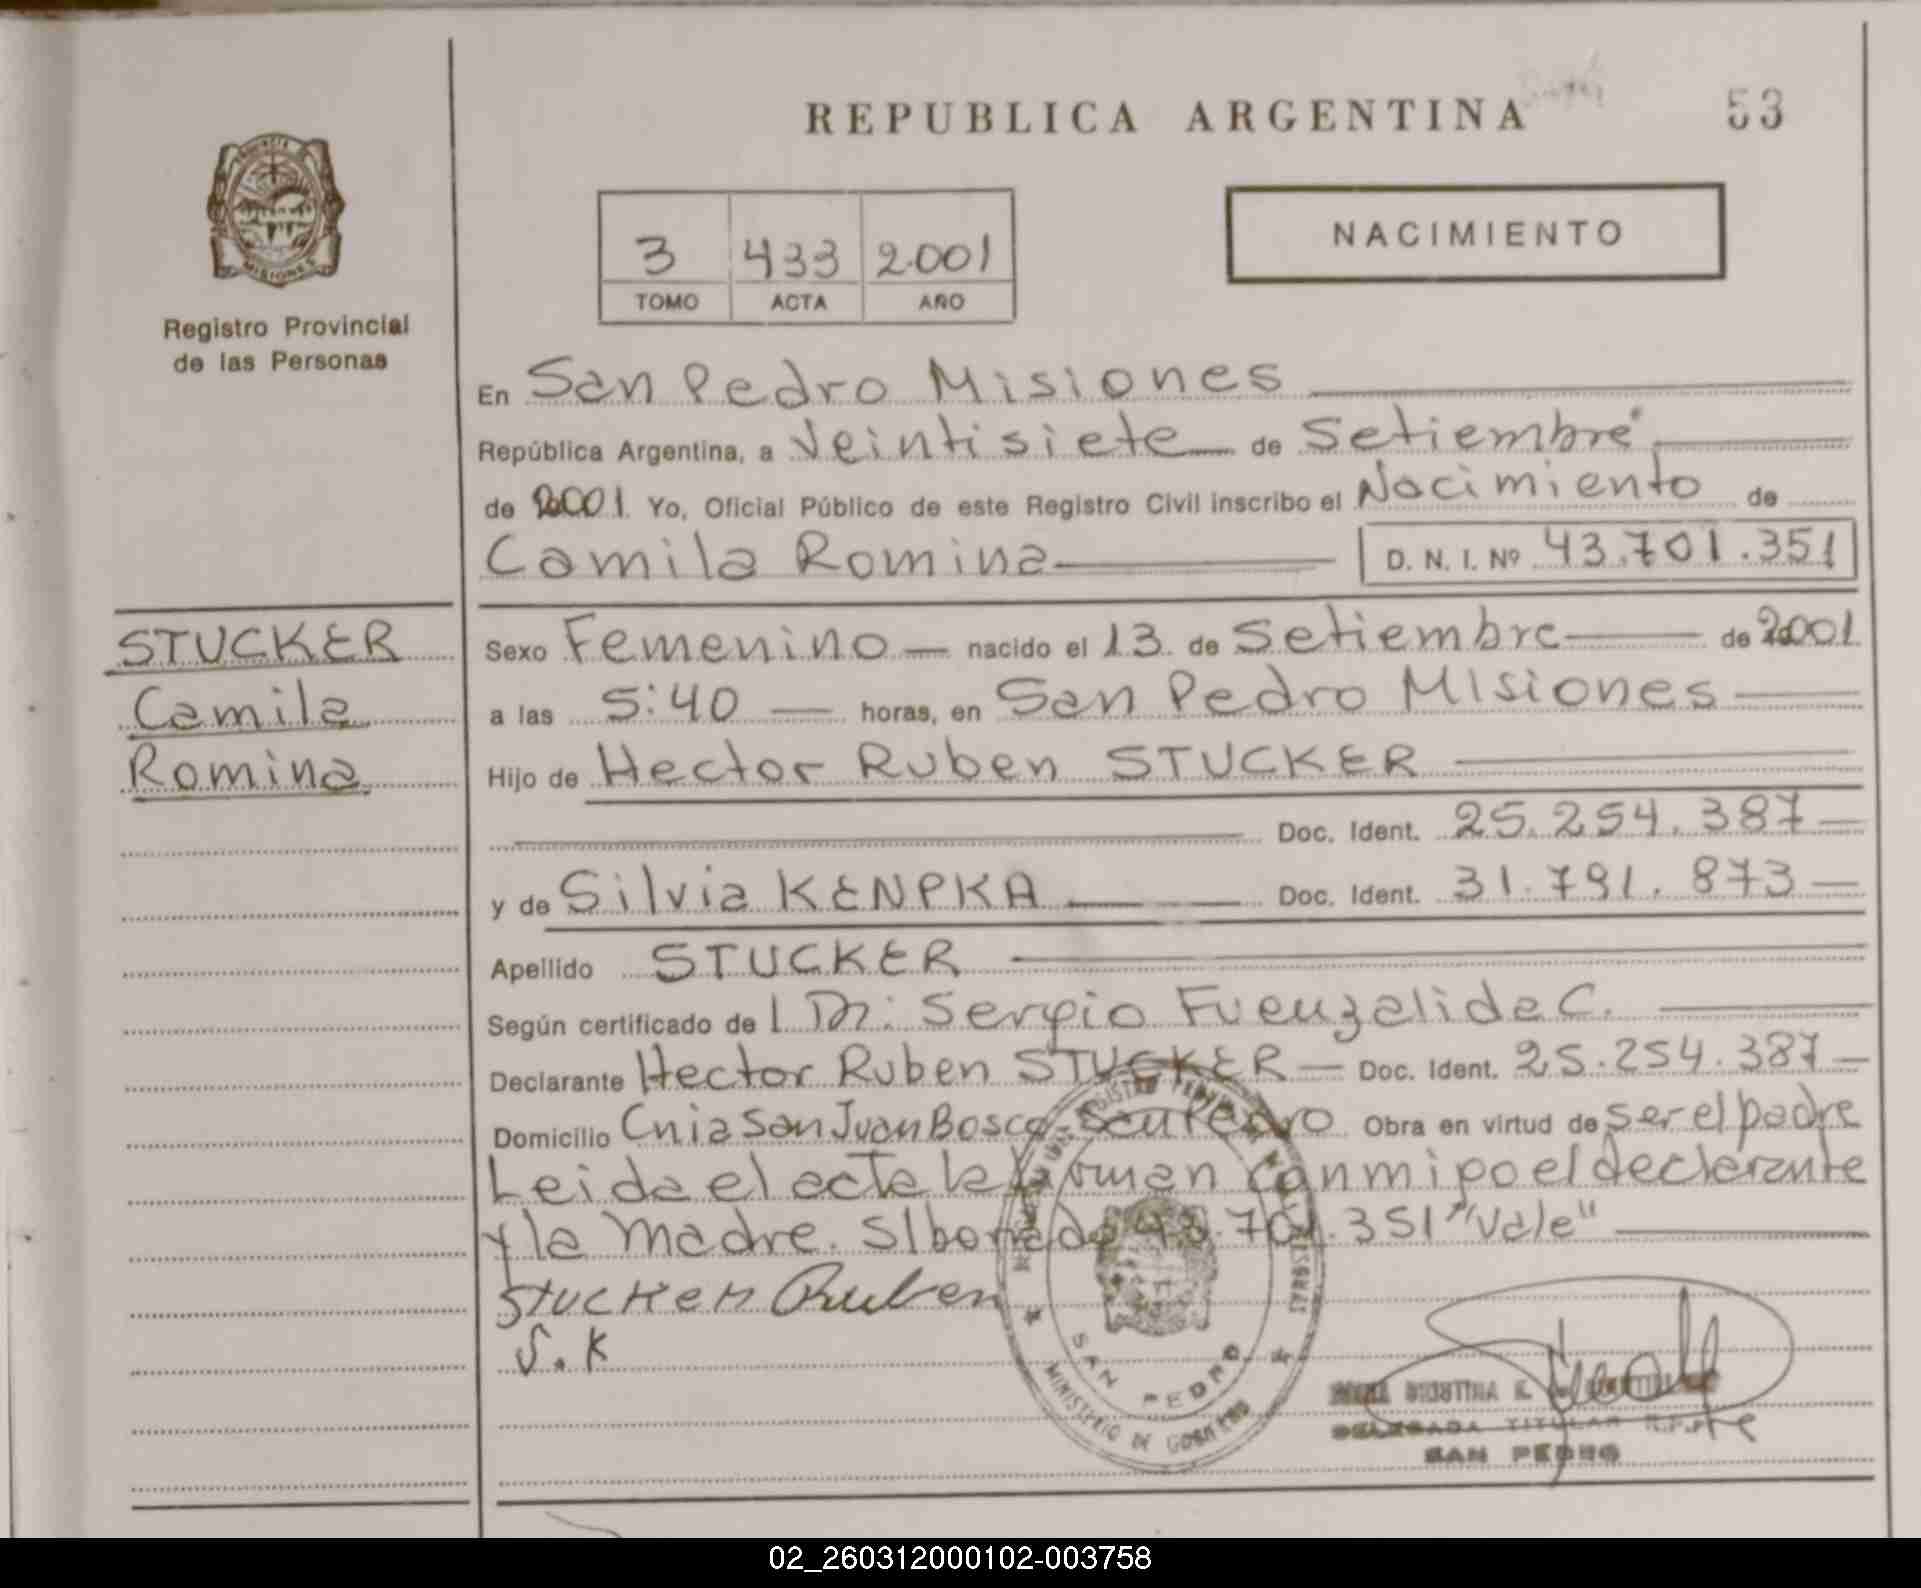 REPUBLICA ARGENTINA
53
3 433 2.001
TOMO ACTA AÑO
NACIMIENTO
PROVINCIA
MISIONES
Registro Provincial
de las Personas
En San Pedro Misiones
República Argentina, a Veintisiete de Setiembre
de 2001 Yo, Oficial Público de este Registro Civil inscribo el Nacimiento de
Camila Romina D. N. I. Nº 43.701.351
STUCKER
Camila
Romina
Sexo Femenino nacido el 13 de Setiembre de 2001
a las 5:40 horas, en San Pedro MIsiones
Hijo de Hector Ruben STUCKER
Doc. Ident. 25.254.387
y de Silvia KENPKA Doc. Ident. 31.791.873
Apellido STUCKER
Según certificado de l Dr: Sergio Fuenzalida C.
Declarante Hector Ruben STUCKER Doc. Ident. 25.254.387
Domicilio Cnia San Juan Bosco San Pedro Obra en virtud de ser el padre
Leida el acta la firman conmipo el declarante
y la madre. S/borrado 43.701.351 "Vale"
Stucker Ruben
S.K
SAN PEDRO
MINISTERIO DE GOBIERNO
DELEGADA TITULAR R.P.P.
SAN PEDRO
02_260312000102-003758